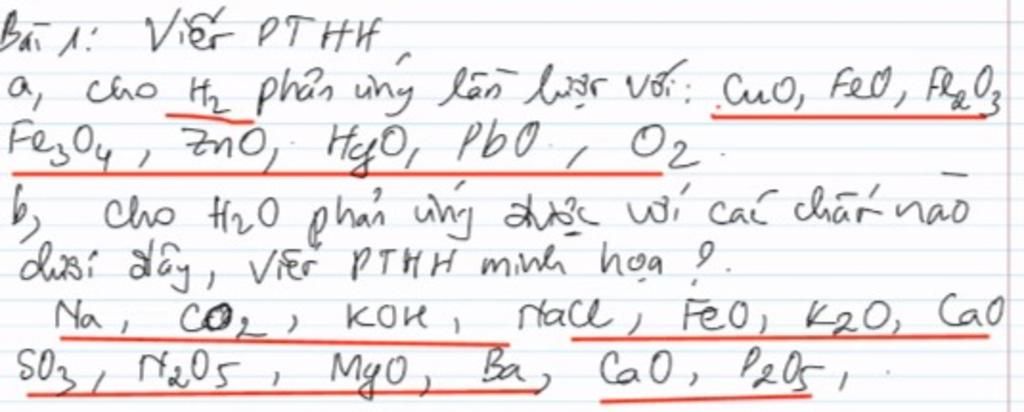 Bài 1: Viết PTHH
a, cho H₂ phản ứng lần lượt với: CuO, FeO, Fe₂O₃
Fe₃O₄, ZnO, HgO, PbO, O₂.
b, Cho H₂O phản ứng được với các chất nào
dưới đây, Viết PTHH minh họa?.
Na, CO₂, KOH, NaCl, FeO, K₂O, CaO
SO₃, N₂O₅, MgO, Ba, CaO, P₂O₅,.